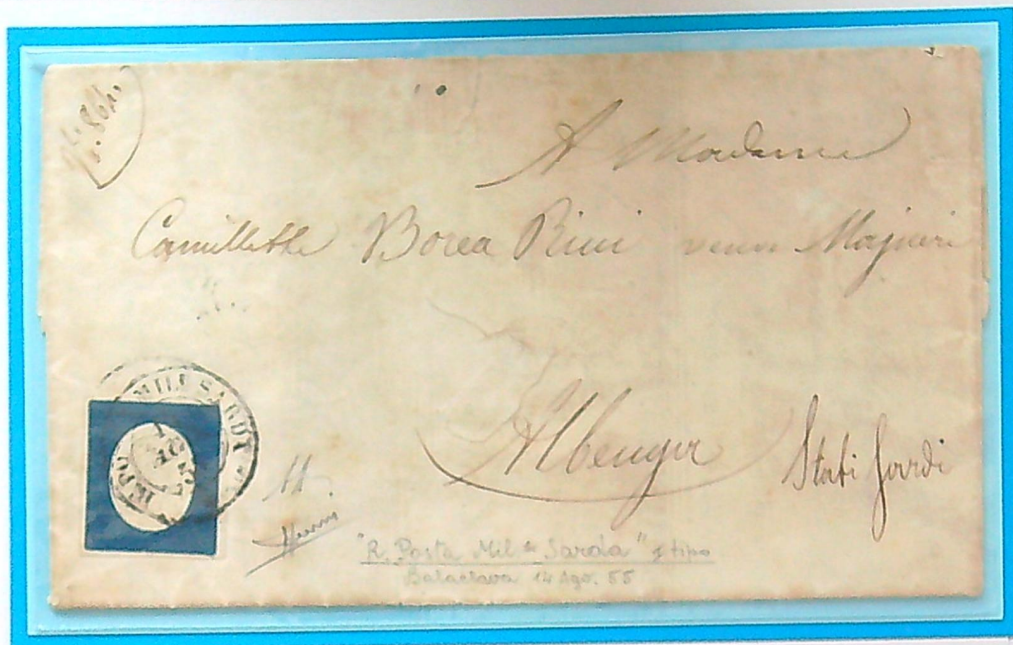 A Madame
Camillette Borea Ricci
Albenga
Stati Sardi
MIL SARDA
"R. Posta Mil.re Sarda" 1° tipo
Balaclava 14 Ago. 55